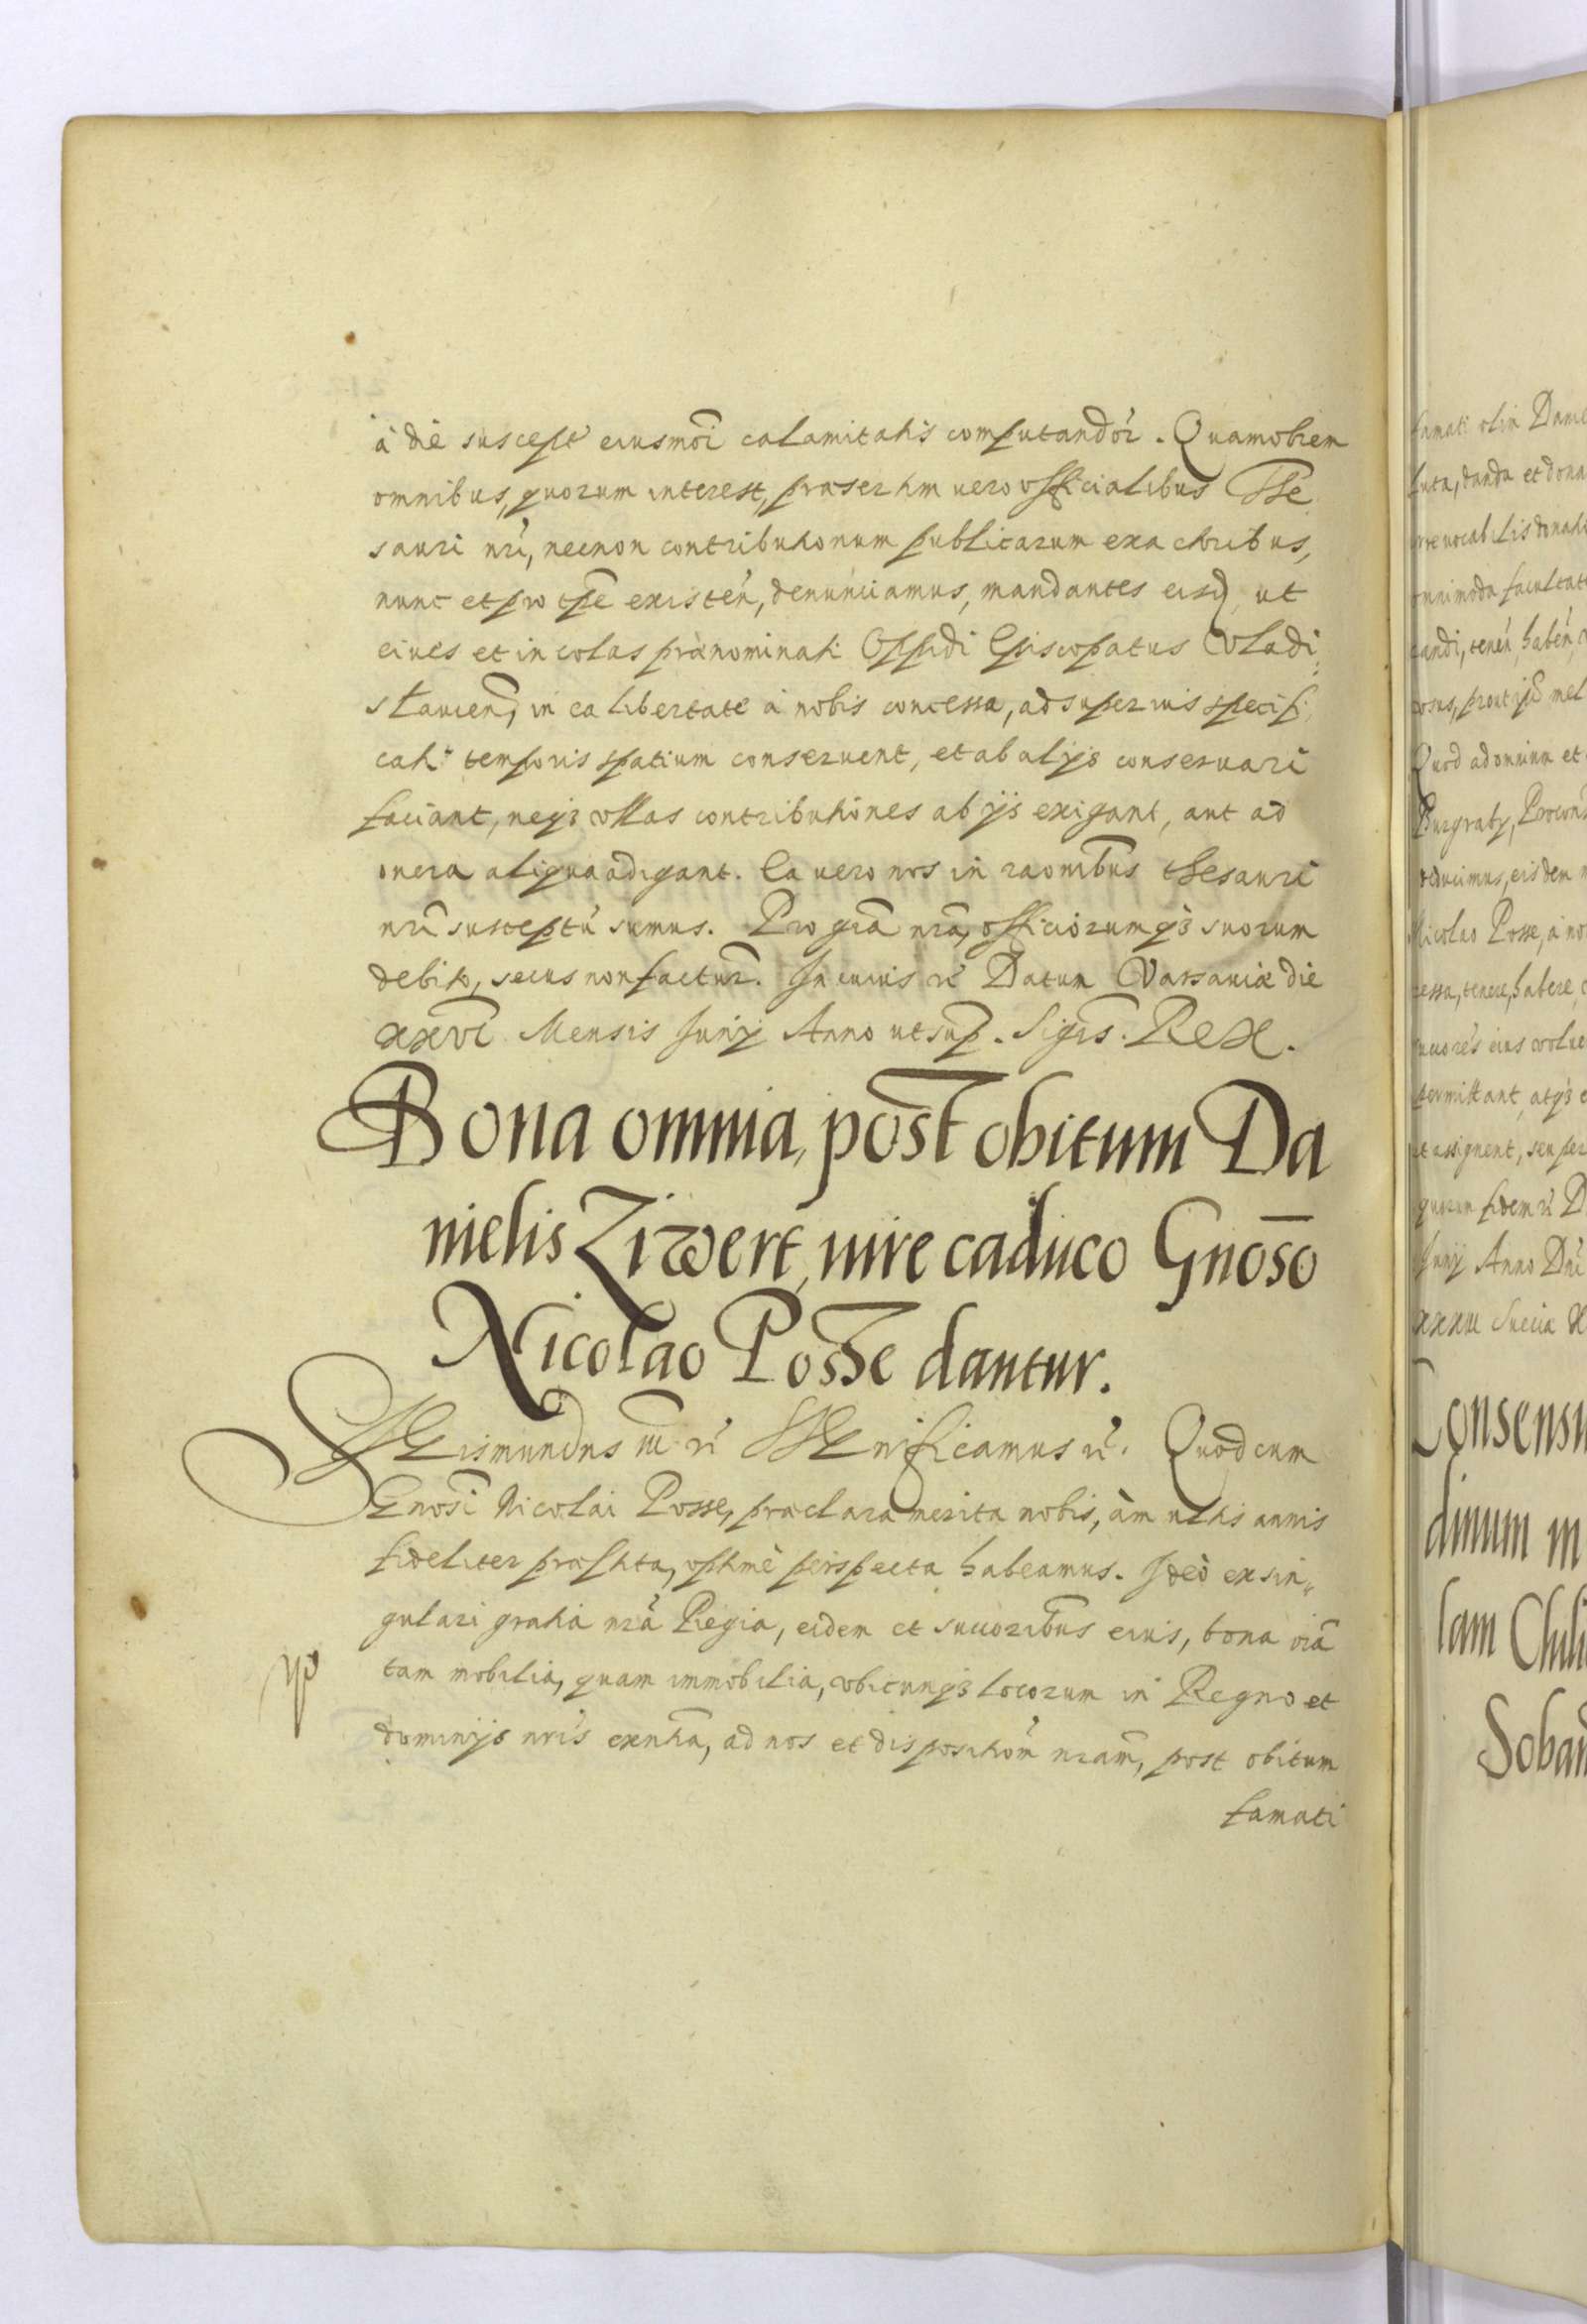 à die suscept' eiusmõi calamitatis computandõr. Quamobrem
omnibus, quorum interest, præsertim uero officialibus The
sauri nri, necnon contributionum publicarum exactoribus,
nunc et pro tpe existen, denunciamus, mandantes eisd, ut
ciues et incolas prænominati Oppidi Episcopatus Vladi
slauien, in ea libertate à nobis concessa, ad superius specifi
cati temporis spatium conseruent, et ab alijs conseruari
faciant, neqз vllas contributiones ab ijs exigant, aut ad
onera aliqua adigant. Ea uero nos in raonibus thesauri
nri susceptu sumus. Pro gra nra, officiorumqз suorum
debito, secus non factur. In cuius rei Datum Varsauiæ die
xxvi Mensis Junij Anno ut sup. Sigis. Rex.
Bona omnia, post obitum Da
nielis Ziwert, iure caduco Gnoso
Nicolao Posse dantur.
SIGismundus iii rc Significamus rc. Quod cum
Gnosi Nicolai Posse, præclara merita nobis, à multis annis
fideliter præstita, optimè perspecta habeamus. Ideò ex sin
gulari gratia nra Regia, eidem et succoribus eius, bona oia
tam mobilia, quam immobilia, vbicunqз locorum in Regno et
dominijs nris exntia, ad nos et dispositiom nram, post obitum
famati
famati olim Danie
luta, danda et dona
irreuocabilis donati
omnimoda facultate
randi, tenen, haben,
prout ipse mel
Quod ad omnium et
Burgrabij, Procons
deducimus, eisdem
Nicolao Posse, à no
cessa, tenere, habere
succores eius
permittant, atqз
et assignent, seu per
quorum fidem rc D
Junij Anno Dni
xxxiii Sueciæ
Consensu
dinum in
lam Chili
Soban